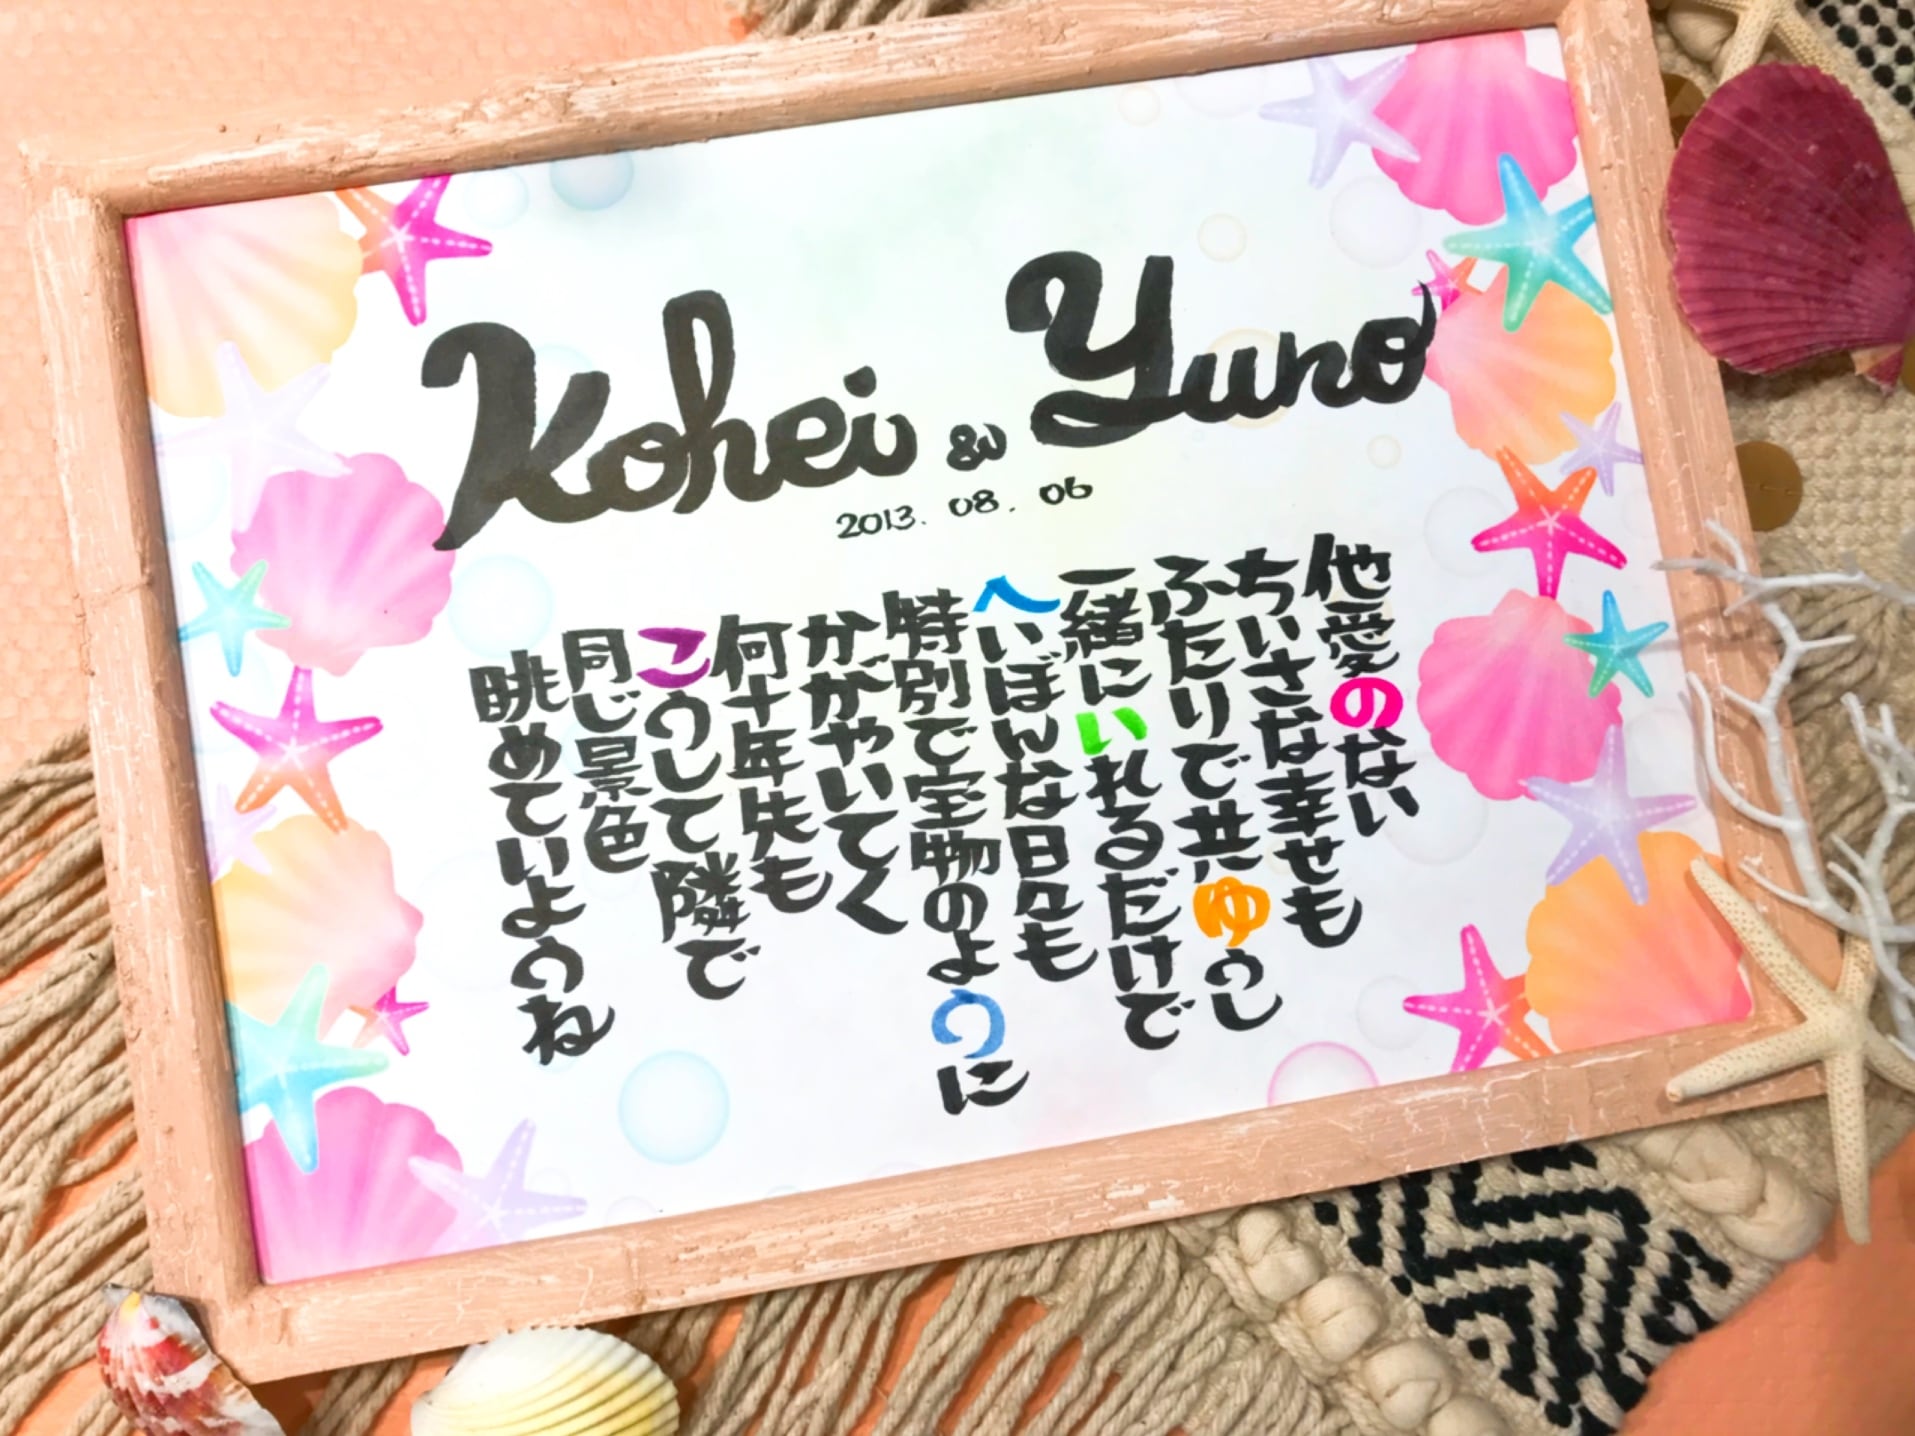 Kohei & Yuno
2013. 08. 06
他愛のない
ちいさな幸せも
ふたりで共ゆうし
一緒にいれるだけで
へいぼんな日々も
特別で宝物のように
かがやいてく
何十年先も
こうして隣で
同じ景色
眺めていようね